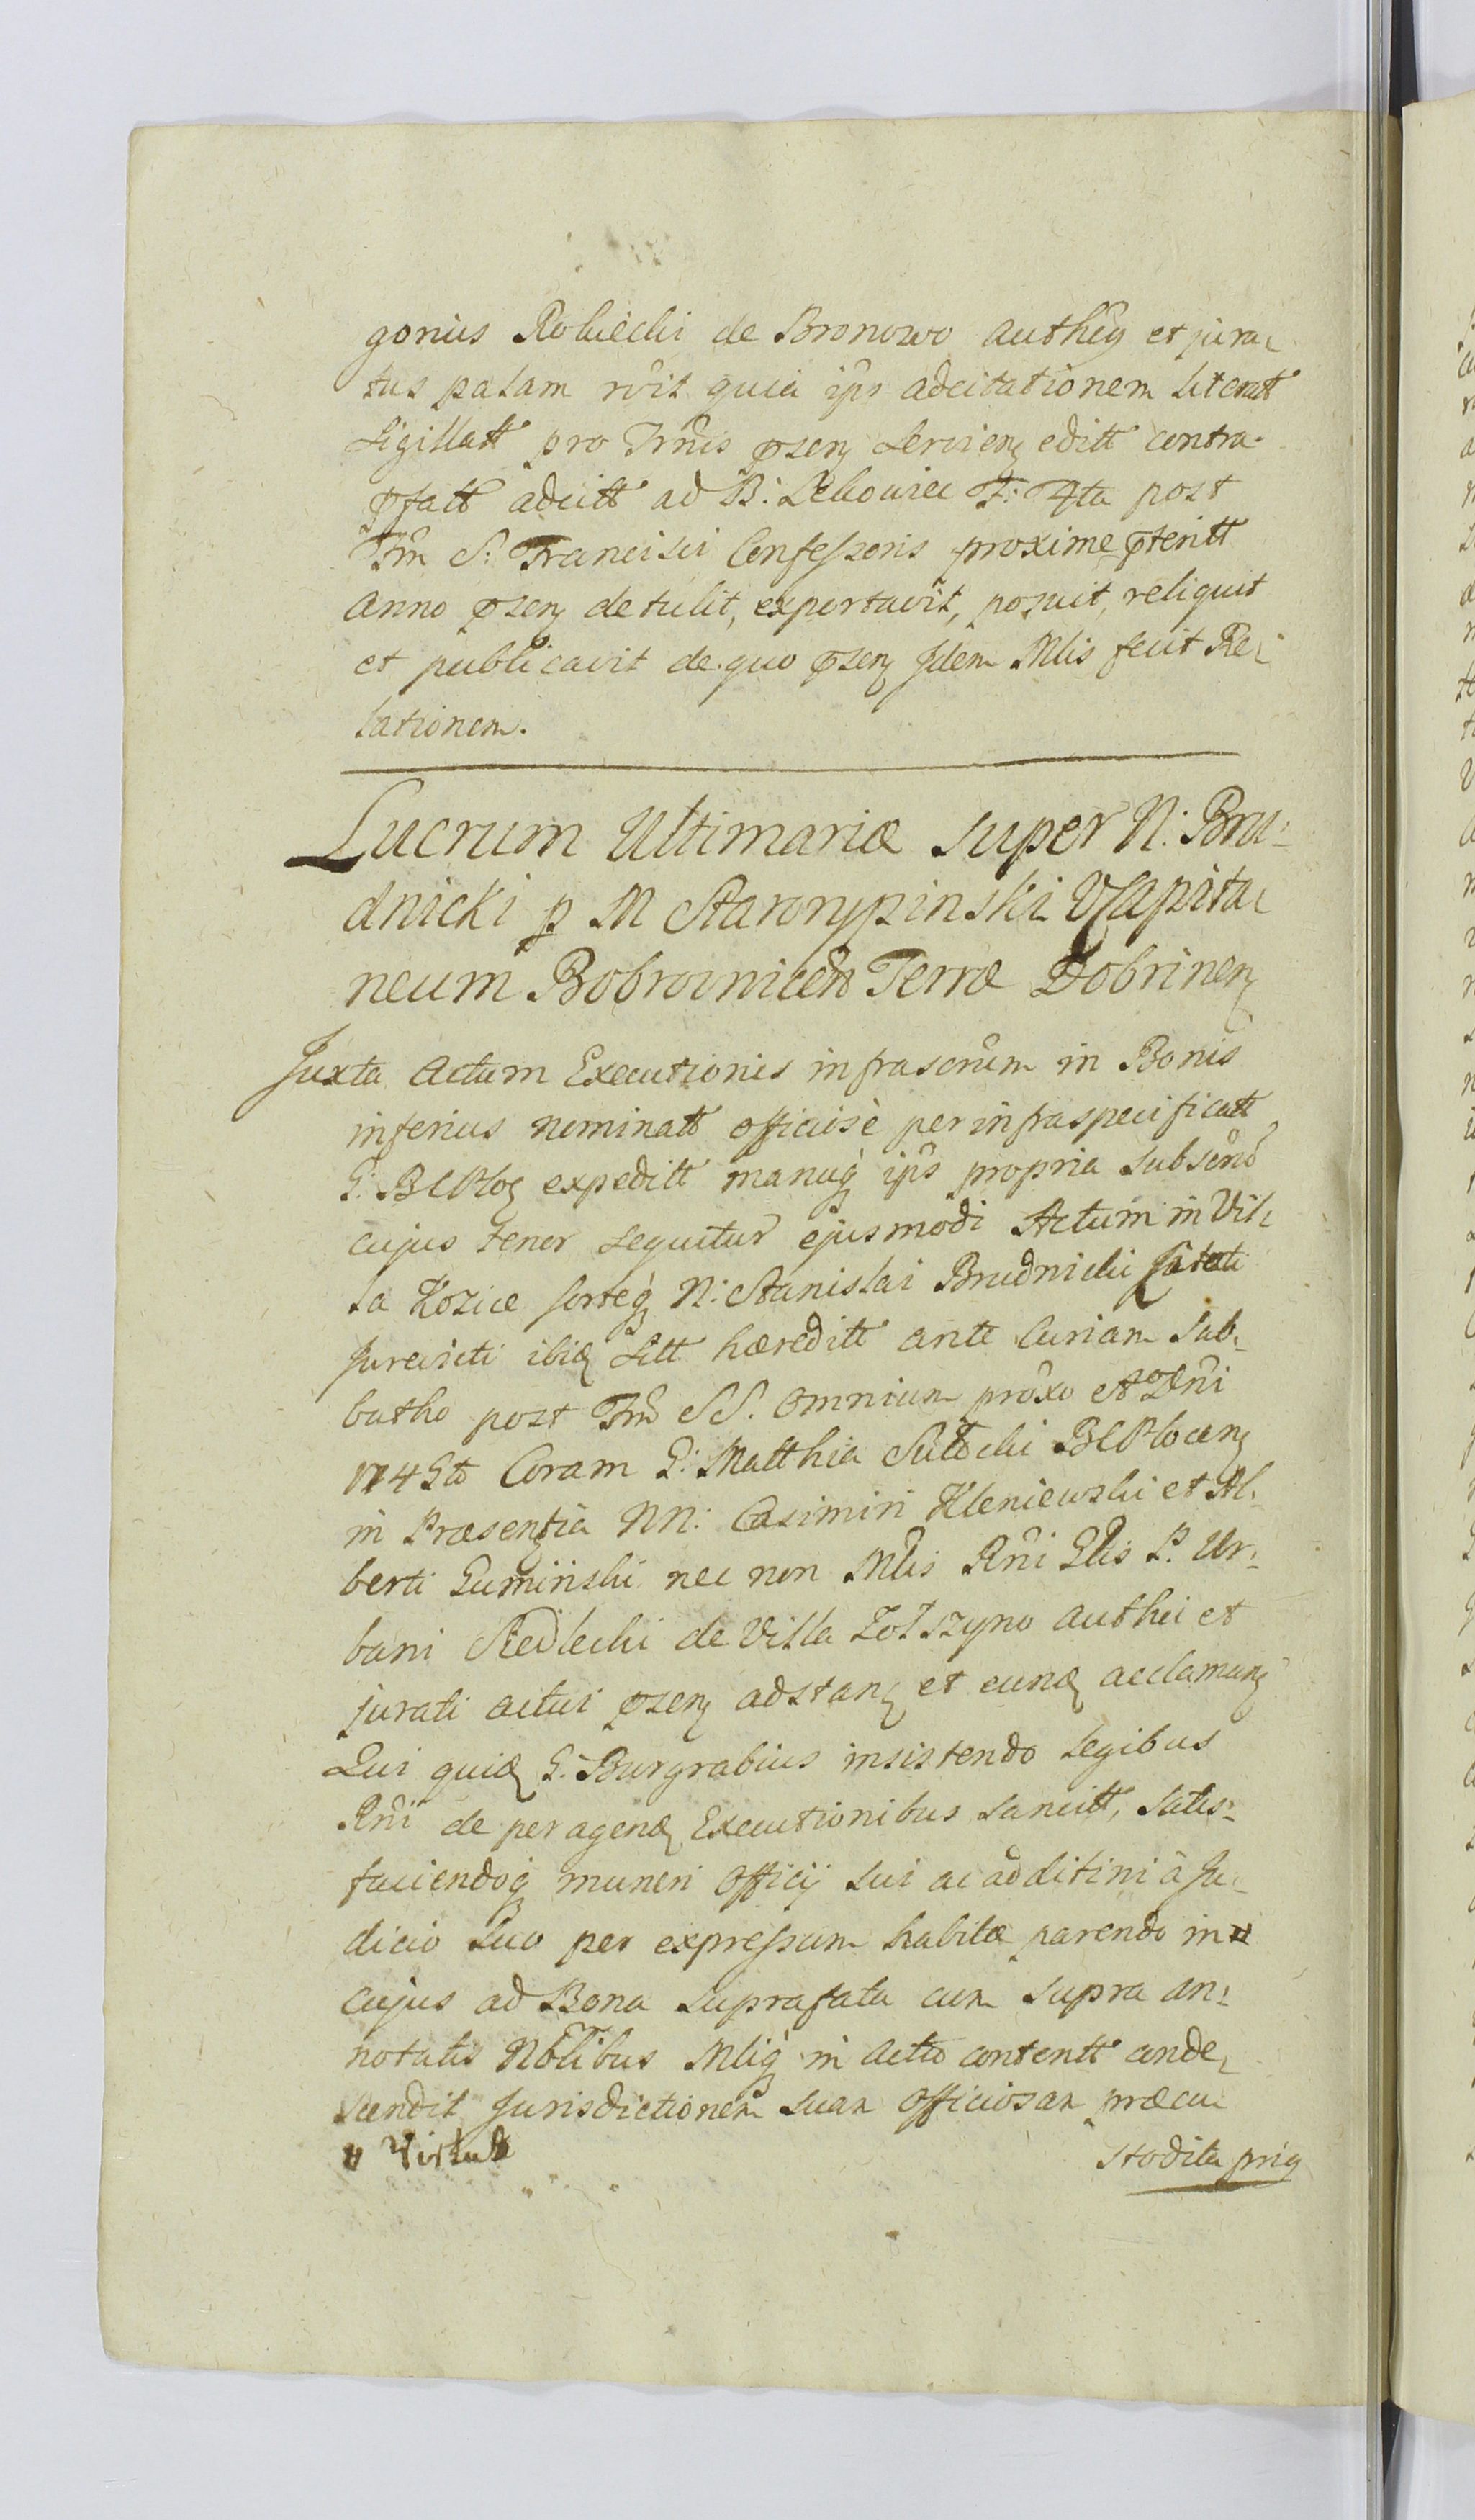 gonius Robiecki de Bronowo Autheg et jura-
tus palam rvit quia ips adcitationem literatt
Sigillatt pro Trnis pszen servien editt contra
pfatt adcitt ad B: Lekowiec F: 4ta post
Fm S: Francisci Confessoris proxime pteritt
Anno pszen detulit, exportavit, posuit, reliquit
et publicavit de quo pszen Idem Mlis fecit Re-
lationem.
Lucrum Ultimariæ super N: Bru-
dnicki p M Starorypinski VCapita-
neum Bobrownicen Terræ Dobrinen
Juxta Actum Executionis infrascrum in Bonis
inferius nominatt officiosè per infraspecificatt
G: BCPloc expeditt manuq ips propria subscro
cujus tenor sequitur ejusmodi Actum in Vil-
la Kozice sorteq N: Stanislai Brudnicki
Jurevicti ibid sitt hæreditt ante Curiam Sab-
batho post Fm SS. Omnium proxo Ao Dni
174 Coram G: Matthia BCPlocen
in Præsentia NN: Casimiri Kleniewski et Al-
berti Guminski nec non Mlis Rni Glis P. Ur-
bani Siedlecki de Villa Zolszyno authei et
jurati actui pszen adstan et eund acclaman
Qui quid G: Burgrabius insistendo legibus
Rni de peragend Executionibus sancitt, satis-
faciendoq muneri Officij sui ac additini à Ju-
dicio suo per expressum habitæ parendo in #
cujus ad Bona suprafata cum supra an-
notatis Nobilibus Mliq in actu contentt conde-
scendit Jurisdictionem suam Officiosam præcu-
# Virtute
stodita priq